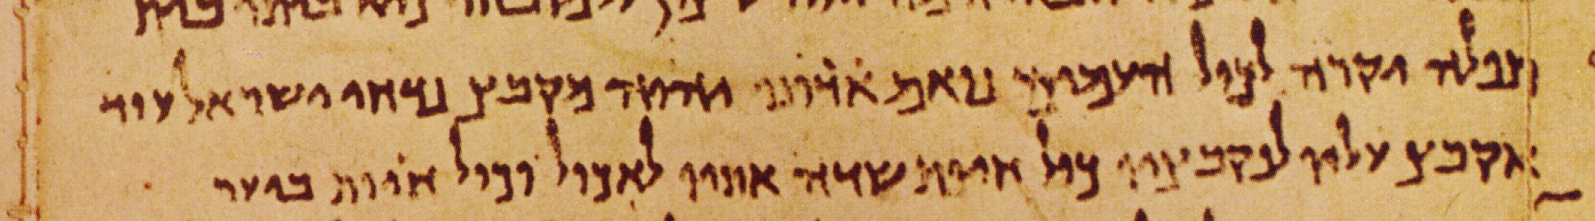 תפלה יקרה לכול העמים נואם אדוני יהוה מקבץ נדחי ישראל עוד
אקבץ עליו לנקבציו כול חיות שדה אתיו לאכול וכול חיות ביער